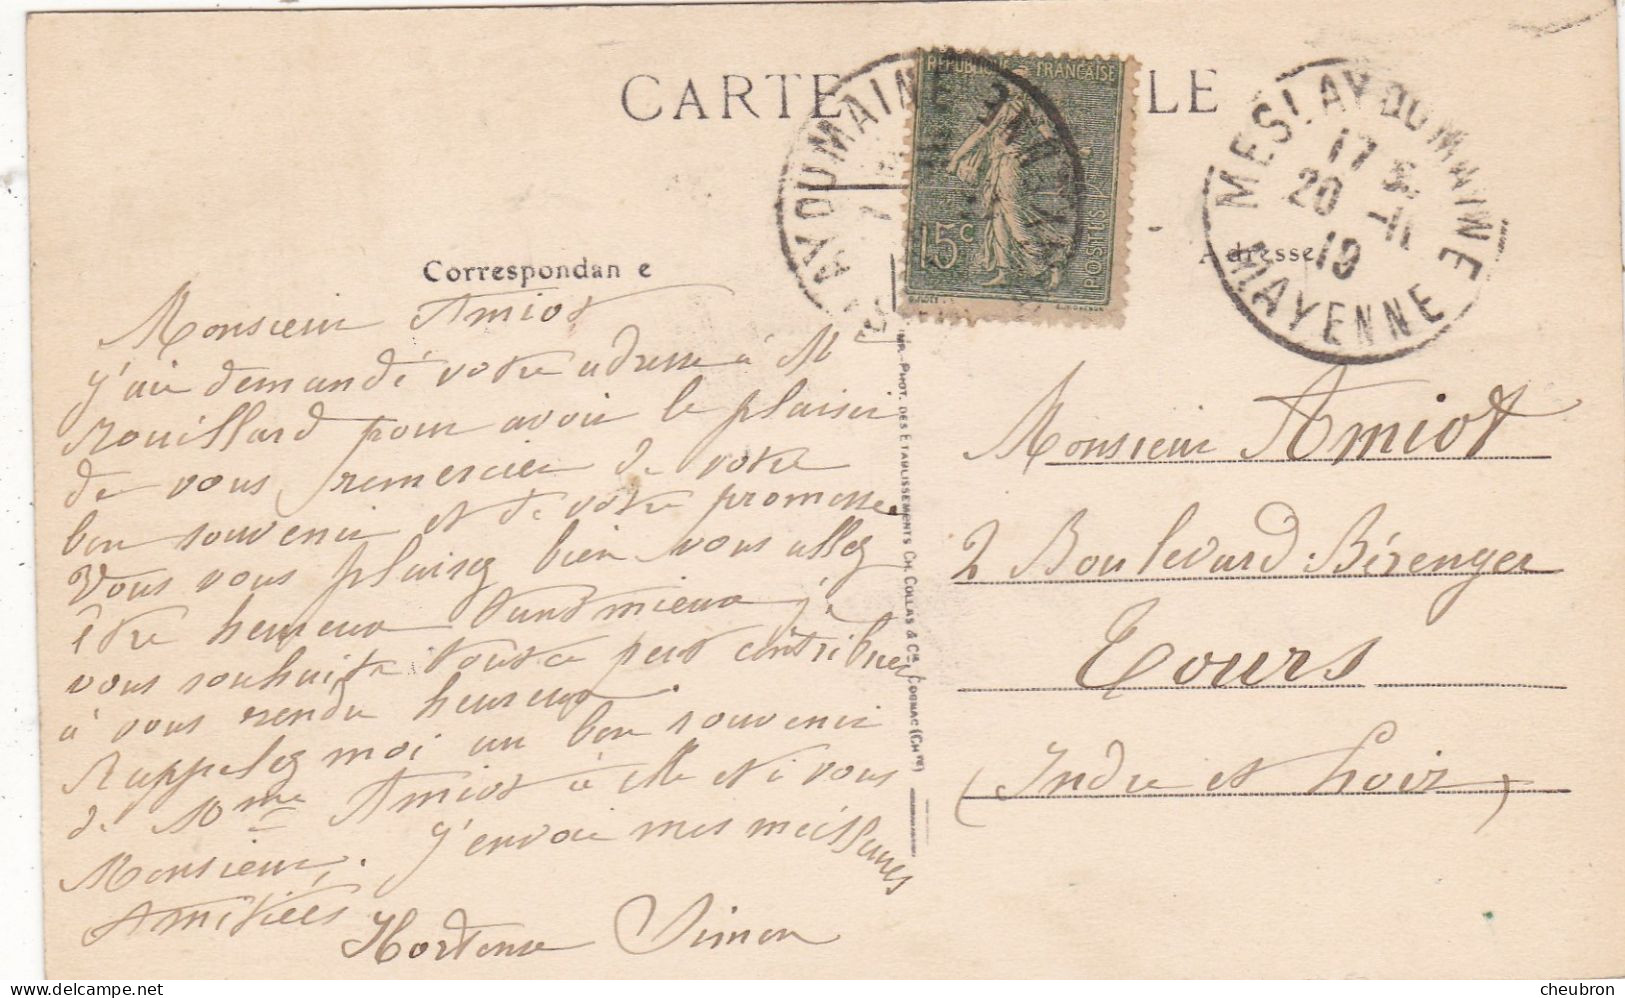 CARTE LE
REPUBLIQUE FRANÇAISE
15c
POSTES
AY DU MAINE
MAYENNE
MESLAY DU MAINE
17
20 -11
19
MAYENNE
Correspondan e
Adresse
Monsieur Amiot
J'ai demandé votre adresse à M
rouillard pour avoir le plaisir
de vous remercier de votre
bon souvenir et de votre promesse
Vous vous plaisez bien vous allez
être heureux tant mieux je
vous souhaite tout ce peut contribuer
à vous rendu heureux.
Rappelez moi un bon souvenir
de Mme Amiot à elle et à vous
Monsieur, J'envoie mes meilleures
Amitiées
Hortense Simon
IMP.-PHOT. DES ETABLISSEMENTS CH. COLLAS & Cie, COGNAC (CHte)
Monsieur Amiot
2 Boulevard Bérenger
Tours
(Indre et Loir)
delcampe.net
cheubron